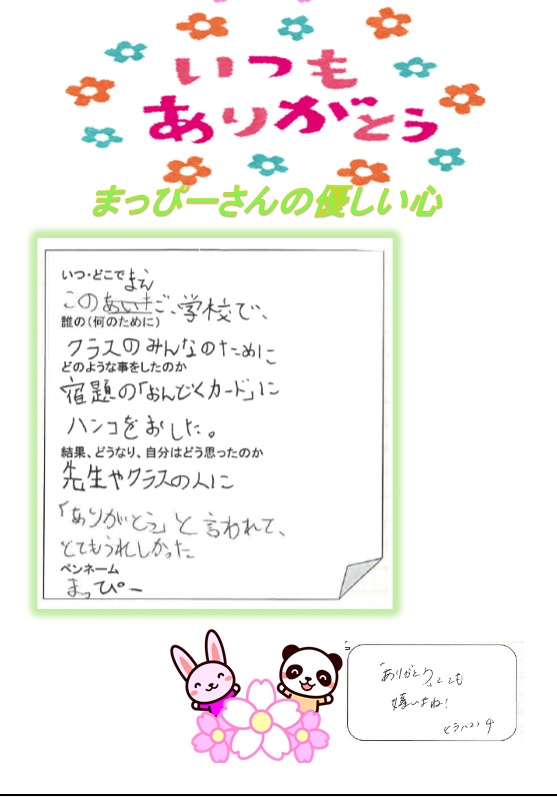 いつも
ありがとう
まっぴーさんの優しい心
いつ・どこで
まえ
この、学校で、
誰の(何のために)
クラスのみんなのために
どのような事をしたのか
宿題の「おんどくカード」に
ハンコをおした。
結果、どうなり、自分はどう思ったのか
先生やクラスの人に
「ありがとう」と言われて、
とてもうれしかった
ペンネーム
まっぴー
「ありがとう」とても
嬉しいよね!